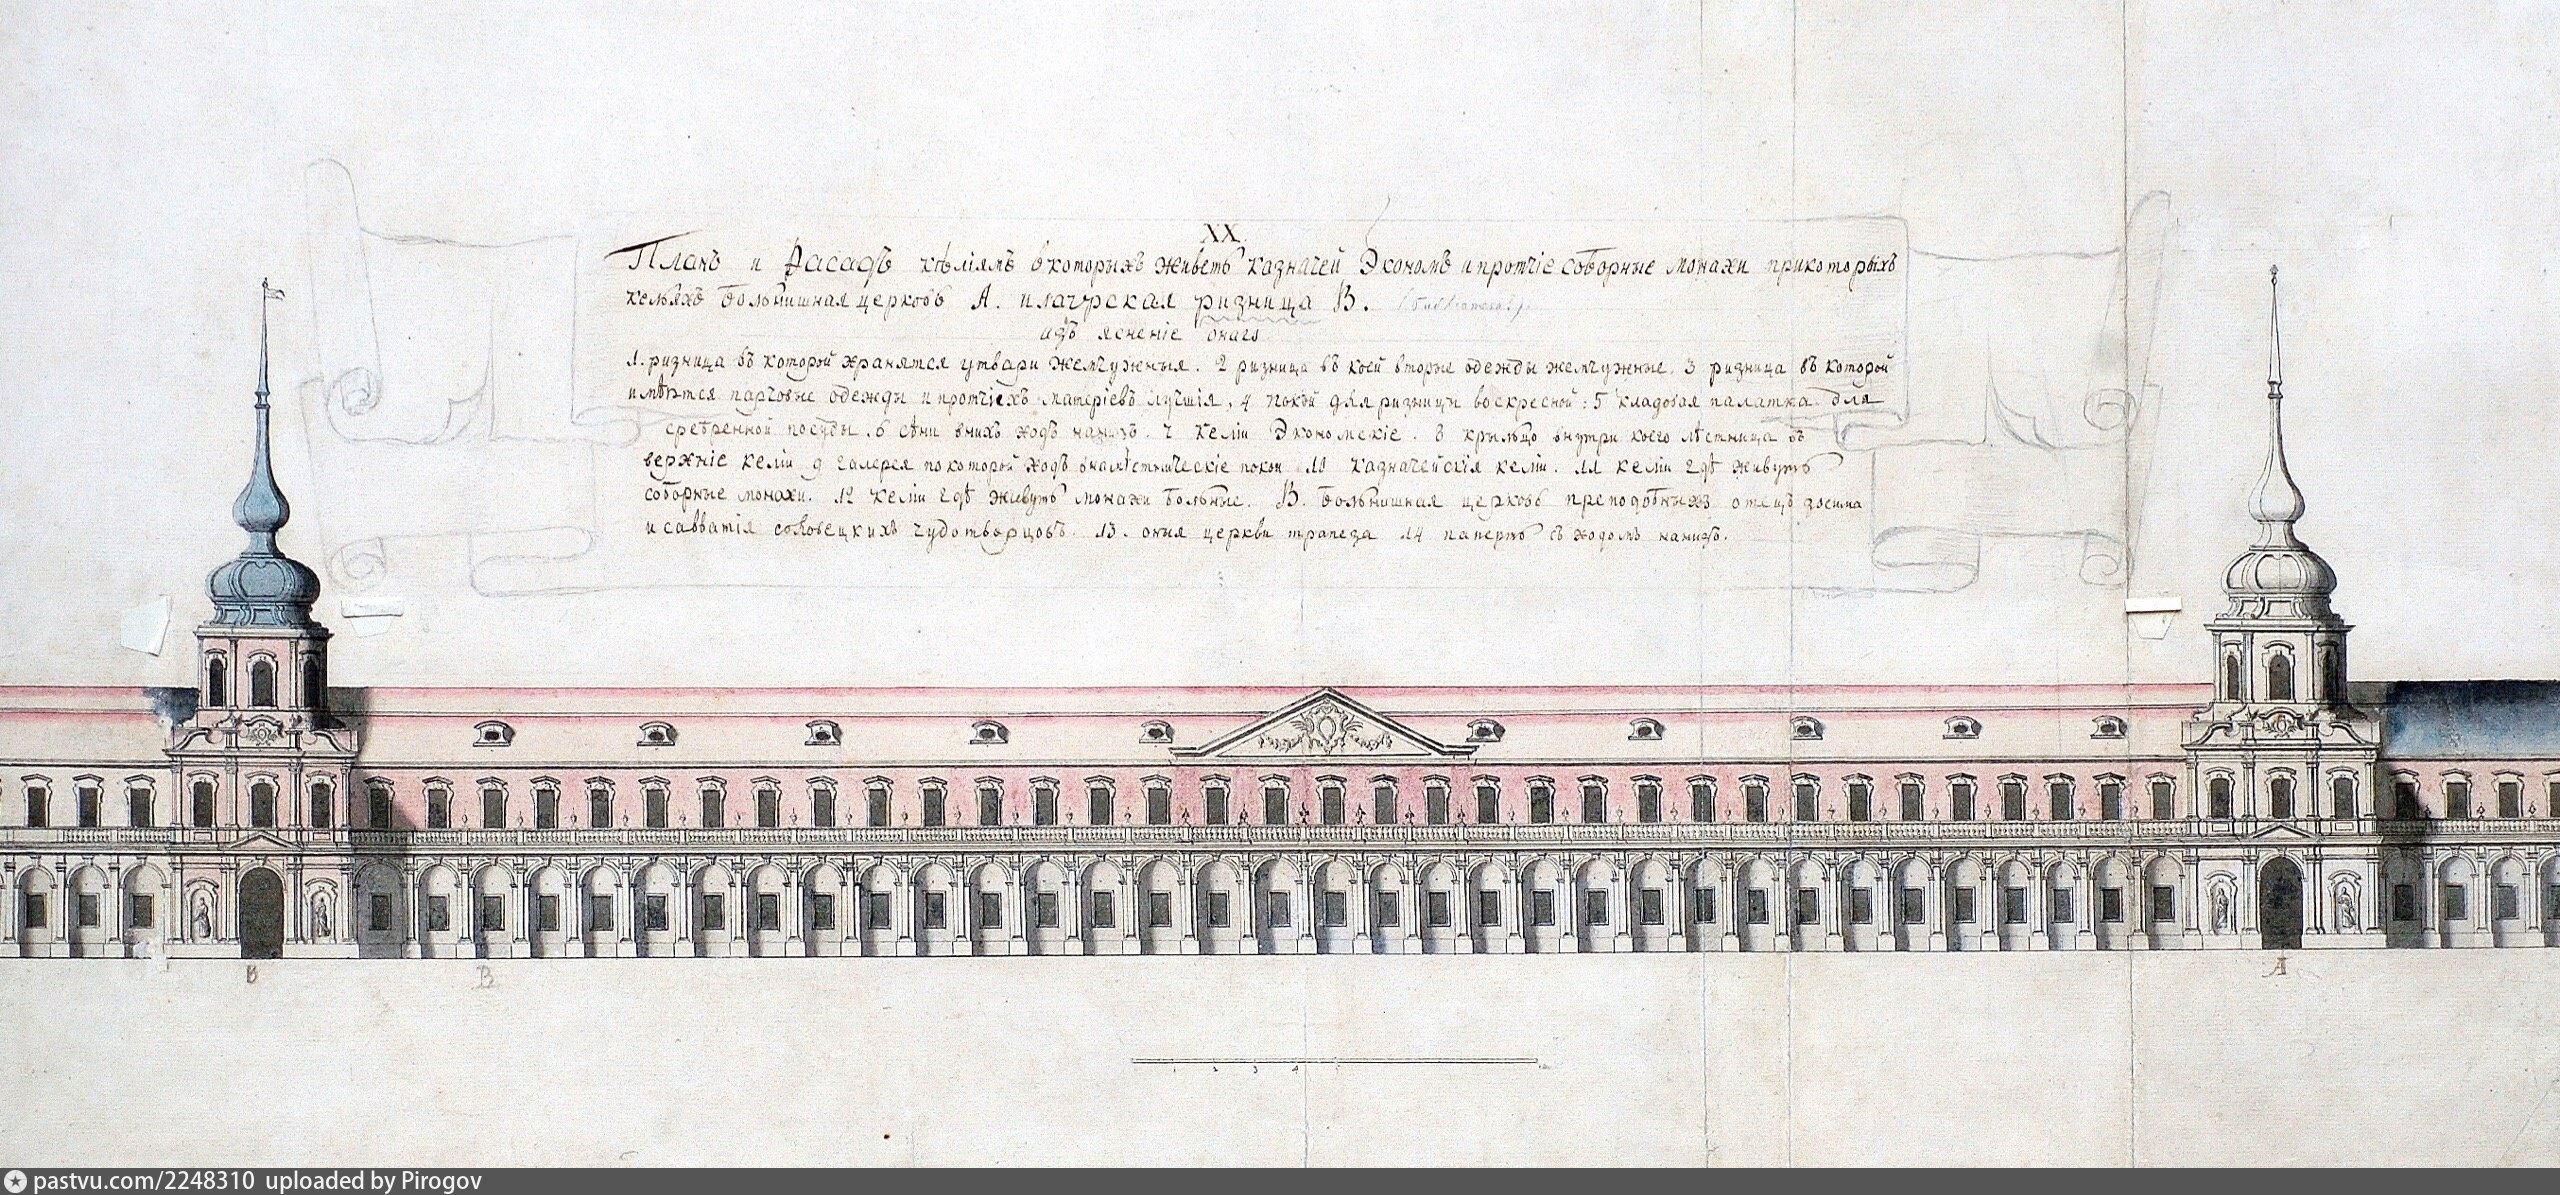 XX.
Планъ и Фасадъ кѣліямъ вкоторыхъ живетъ казначей Экономъ ипротчіе соборные монахи прикоторыхъ
кельяхъ больнишная церковь А. ризница В.
изъ яснение онаго
1. ризница въ которой хранятся утвари жемчужныя. 2 ризница въ коей вторые одежды жемчужные. 3 ризница въ которой
имѣется парчовые одежды ипротчіехъ матеріевъ лучшія, 4 покой для ризницы воскресной: 5 кладовая палатка для
сребренной посуды. 6 сѣни вних ходъ нанизъ. 7 келіи Экономскіе. 8 крыльцо внутри коего лѣстница въ
верхніе келіи 9 галерея покоторой ходъ внамѣстническіе покои 10 казначейскія келіи. 11 келіи гдѣ живутъ
соборные монахи. 12 келіи гдѣ живутъ монахи больные. В. больнишная церковь преподобныхъ отецъ зосима
исавватія соловецкихъ чудотворцовъ. 13. оныя церкви трапеза 14 паперть съ ходомъ нанизъ.
В
В
А
1 2 3 4
pastvu.com/2248310 uploaded by Pirogov